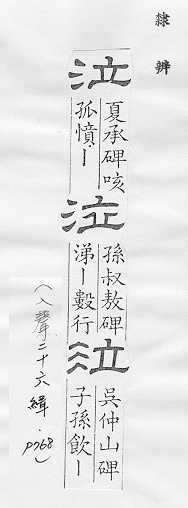 隸辨
泣
夏承碑咳
孤憤、〡
泣
孫叔敖碑
涕〡數行
泣
吳仲山碑
子孫飲〡
（入聲二十六緝．P768）